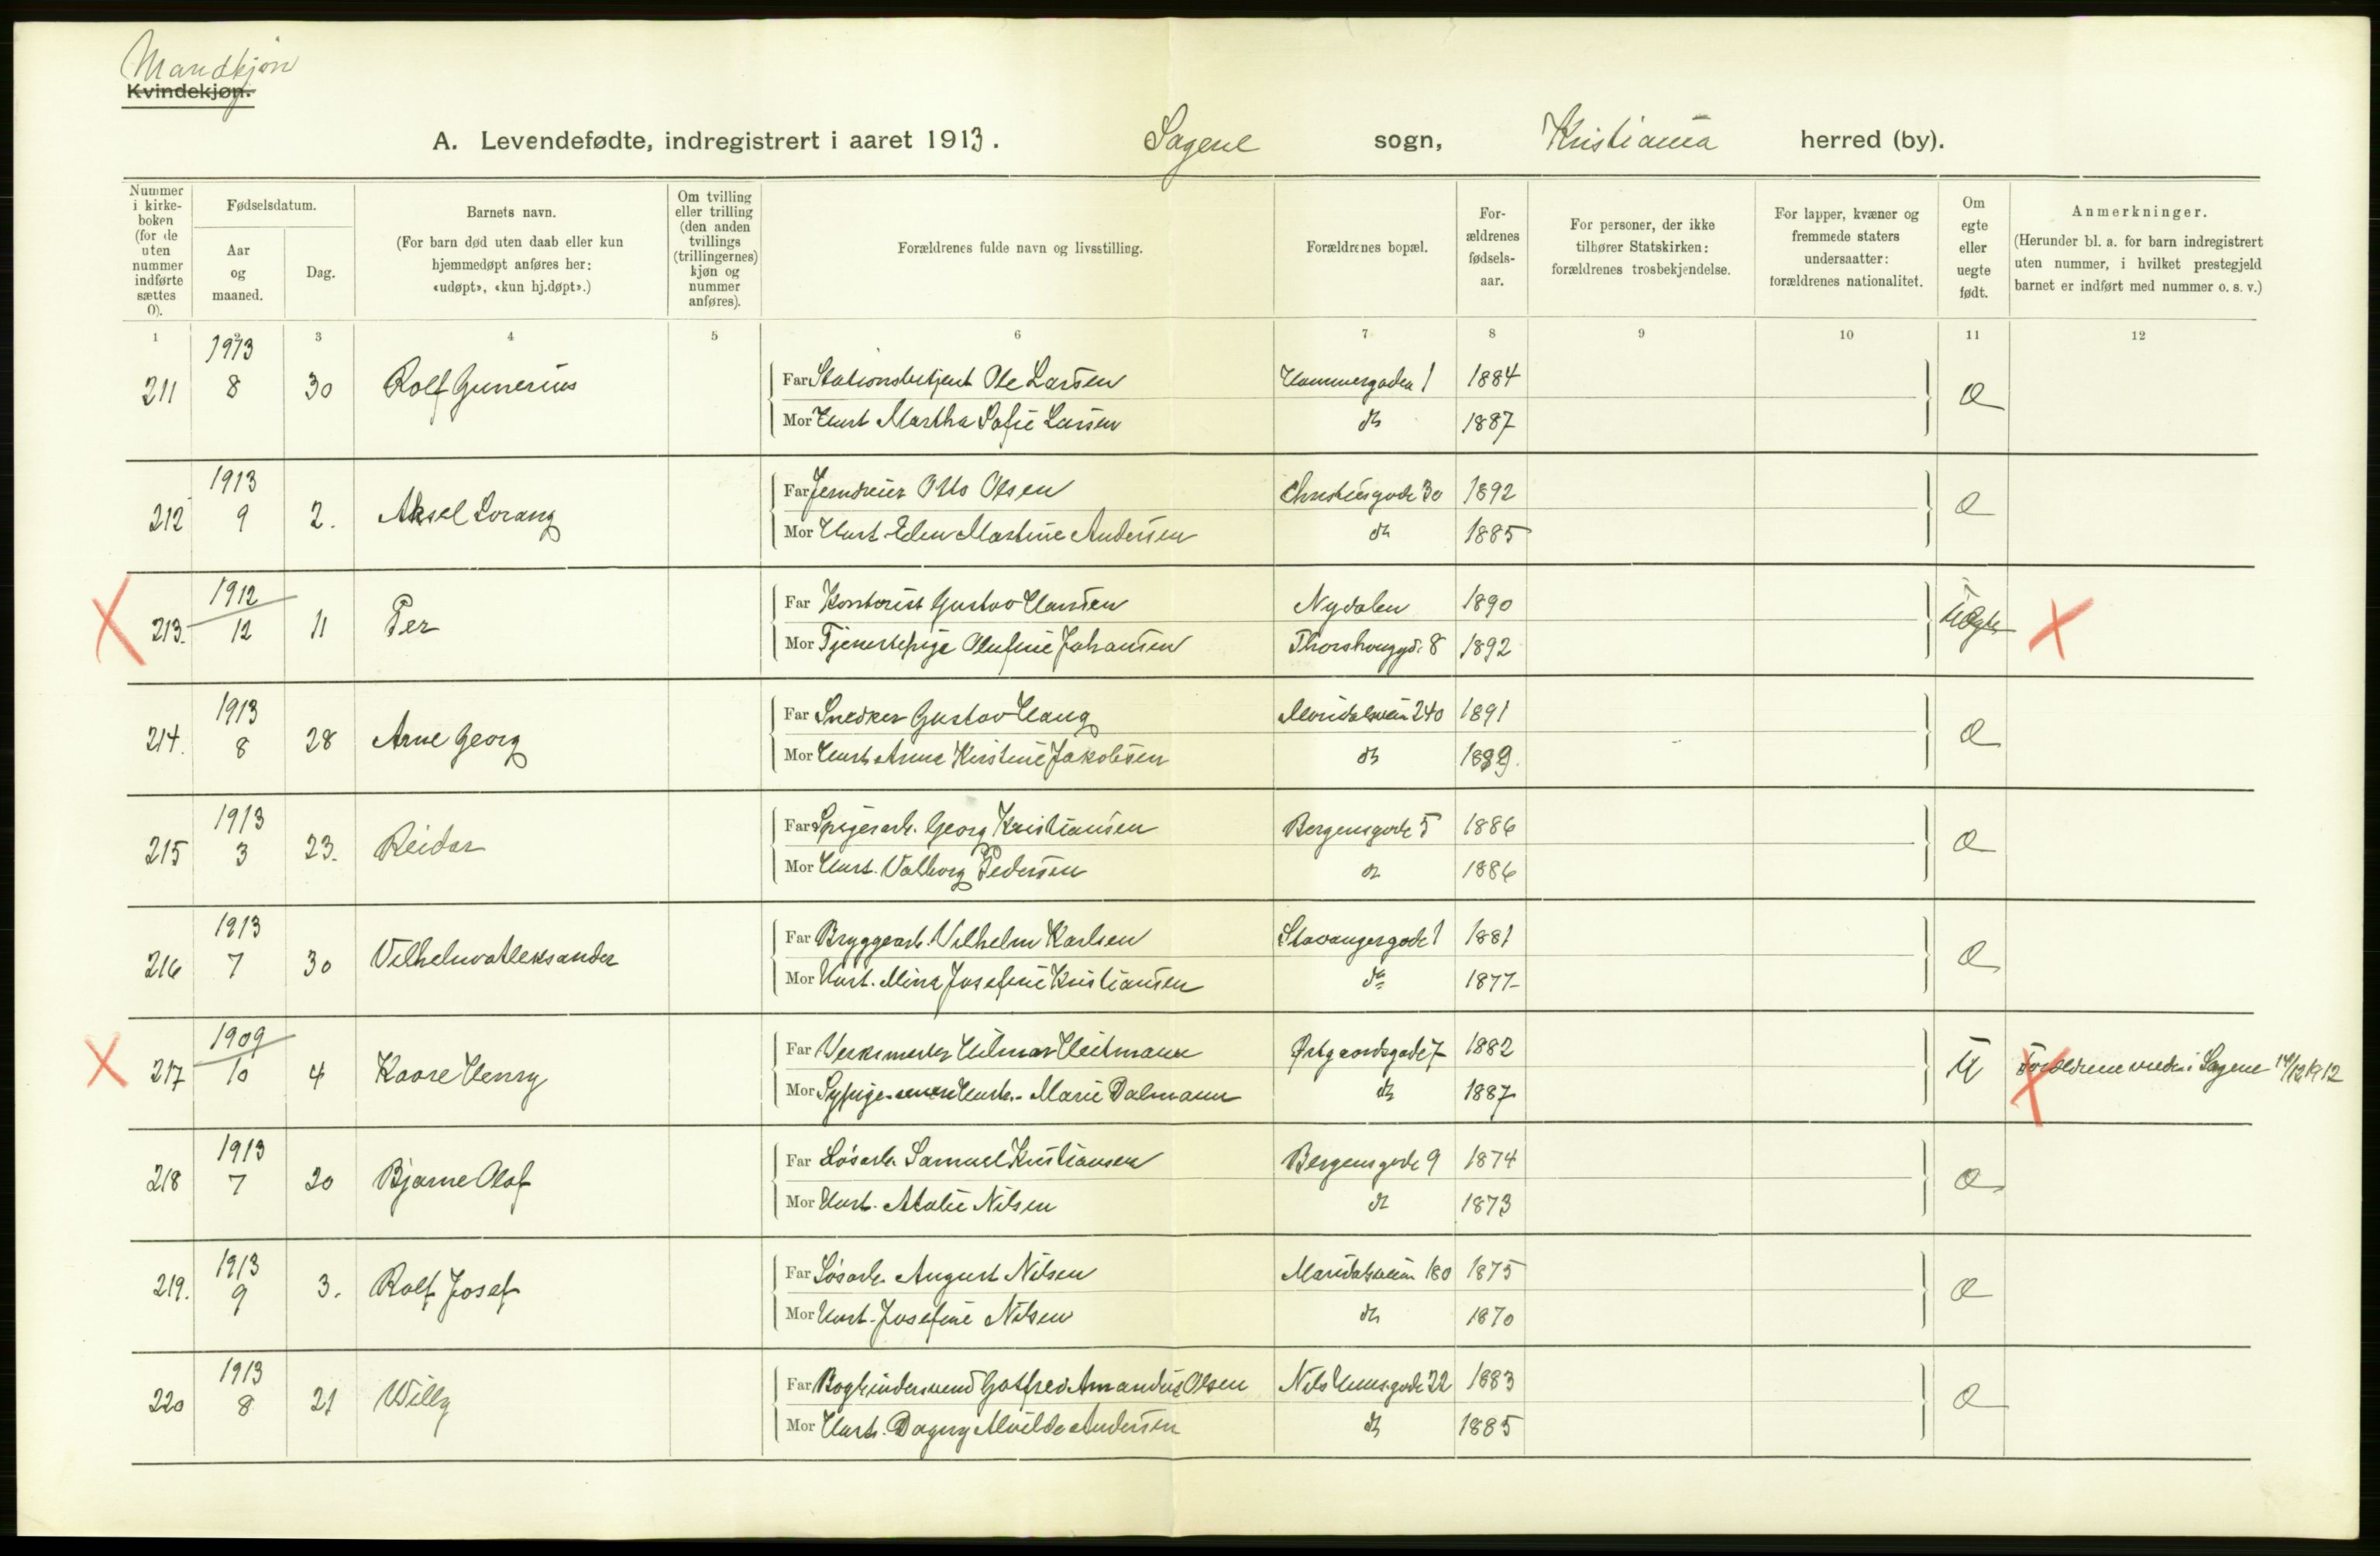 Mandkjøn
Kvindekjøn.
A. Levendefødte, indregistrert i aaret 1913. Sagene sogn, Kristiania herred (by).
Nummer i kirke-boken (for de uten nummer indførte sættes 0).
Fødselsdatum.
Aar og maaned.
Dag.
Barnets navn.
(For barn død uten daab eller kun hjemmedøpt anføres her: «udøpt», «kun hj.døpt».)
Om tvilling eller trilling (den anden tvillings (trillingernes) kjøn og nummer anføres).
Forældrenes fulde navn og livsstilling.
Forældrenes bopæl.
For-ældrenes fødsels-aar.
For personer, der ikke tilhører Statskirken: forældrenes trosbekjendelse.
For lapper, kvæner og fremmede staters undersaatter: forældrenes nationalitet.
Om egte eller uegte født.
Anmerkninger.
(Herunder bl. a. for barn indregistrert uten nummer, i hvilket prestegjeld barnet er indført med nummer o. s. v.)
1 2 3 4 5 6 7 8 9 10 11 12
211 1913 8 30 Rolf Gunerius
Far Stationsbetjent Ole Larsen Hammergaden 1 1884
Mor Hust Martha Sofie Larsen do 1887
212 1913 9 2. Aksel Lorang
Far Jerndreier Otto Olsen Christiesgade 30 1892
Mor Hust. Elen Martine Andersen do 1885
213. 1912 12 11 Per Uegte
Far Kontorist Gustav Hansen Nydalen 1890
Mor Tjenestepige Olufine Johansen Thorshouggd. 8 1892
214. 1913 8 28 Arne Georg
Far Snedker Gustav Haug Maridalsveien 240 1891
Mor Hust. Anna Kirstine Jakobsen do 1889.
215 1913 3 23. Reidar
Far Spigerarb. Georg Kristiansen Bergensgade 5 1886
Mor Hust. Valborg Pedersen do 1886
216 1913 7 30 Vilhelm Aleksander
Far Bryggearb. Vilhelm Karlsen Stavangergade 1 1881
Mor Hust. Mina Josefine Kristiansen do 1877
217 1909 10 4 Kaare Henry U
Far Verksmester Hilmar Heitmann Østgaardsgade 7 1882
Mor Sypige senere Hustr. Marie Dalmann do 1887
Forældrene viede i Sagene 14/12 1912
218 1913 7 20 Bjarne Olaf
Far Løsarb. Samuel Kristiansen Bergensgade 9 1874
Mor Hust. Atalie Nilsen do 1873
219. 1913 9 3. Rolf Josef
Far Løsarb. August Nilsen Maridalsveien 180 1875
Mor Hust. Josefine Nilsen do 1870
220 1913 8 21 Willy
Far Bogbindersvend Gotfred Amandus Olsen Nils Huusgade 22 1883
Mor Hust. Dagny Alvilde Andersen do 1885